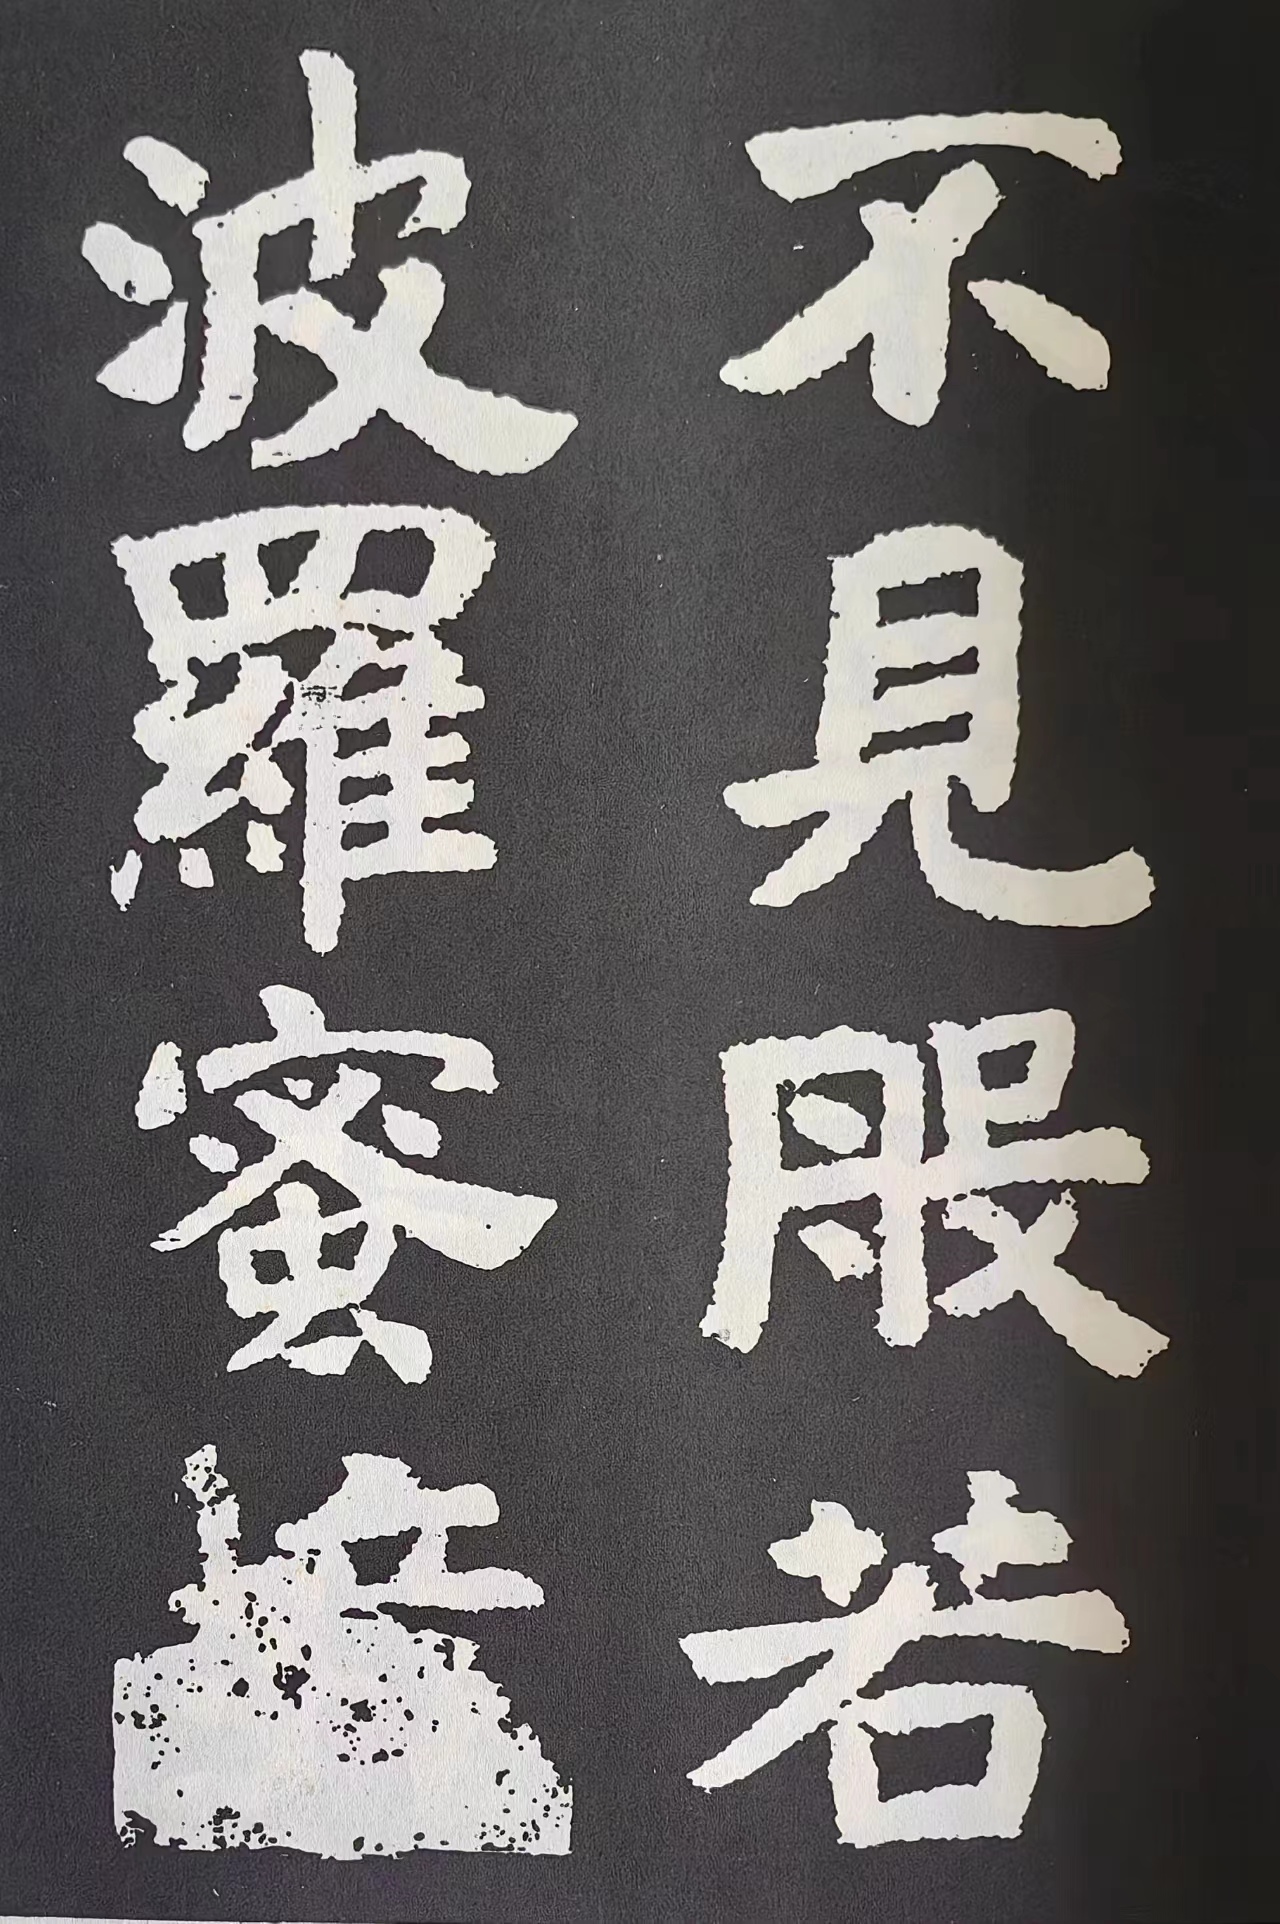 不見般若
波羅蜜